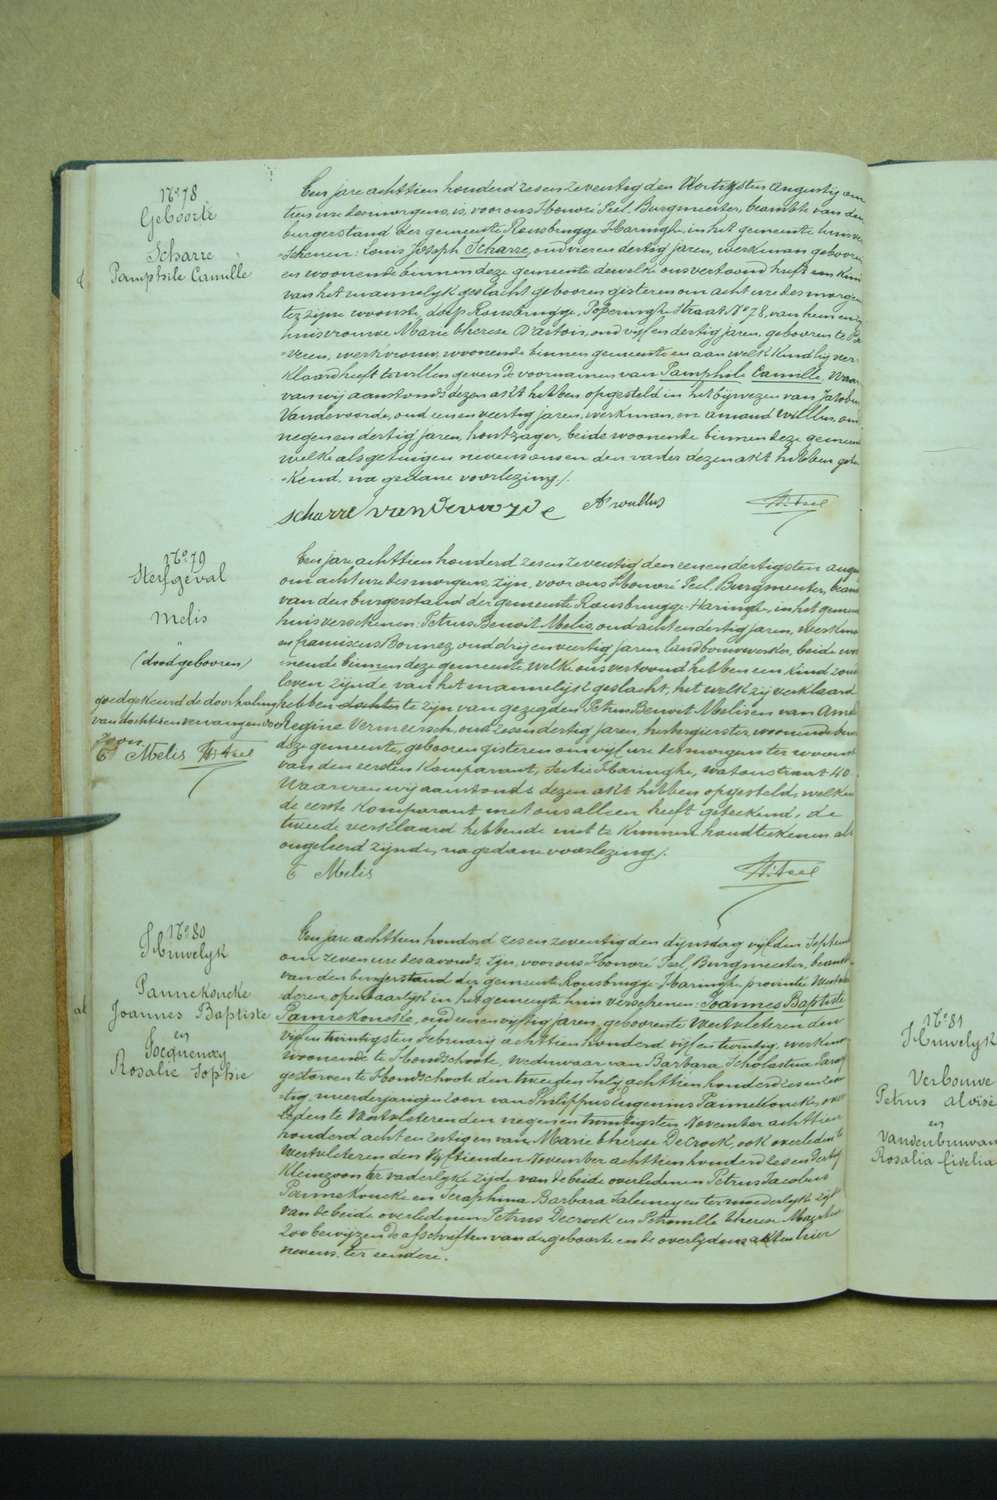 N° 78
Geboorte
Scharre
Pamphile Camille
Een jare achttien honderd zes en zeventig den dertigsten Augustij om
tien ure des morgens, is, voor ons Honoré Peel, Burgmeester, beambte van den
burgerstand der gemeente Rousbrugge-Haringhe, in het gemeente huis ver-
schenen: Louis Joseph Scharre, oud vier en dertig jaren, werkman, geboren
en woonende binnen deze gemeente dewelke ons vertoond heeft een kind
van het mannelyk geslacht, geboren gisteren om acht ure des morgens
te zijne woonste, dorp Rousbrugge, Poperinghe straat N° 78, van hem en zijne
huisvrouwe Marie Therese Dartois, oud vijf en dertig jaren, geboren te
veren, werkvrouw, woonende binnen gemeente en aan welk kind hij ver-
klaard heeft te willen geven de voornamen van Pamphile Camille, Waar
van wij aanstonds dezen akt hebben opgesteld in het bijwezen van Jacobus
Vandevoorde, oud een en veertig jaren, werkman, en Amand Willus, oud
negen en dertig jaren, houtzager, beide woonende binnen deze gemeente
welke als getuigen nevens ons en den vader dezen akt hebben gete-
kend, na gedane voorlezing.
scharre vandevoorde A willus H. Peel
N° 79
Sterfgeval
Melis
"
(doodgebooren)
goedgekeurd de doorhaling
van dochter en vervangen door
zoon
C Melis H. Peel
Een jare achttien honderd zes en zeventig den een en dertigsten augusti
om acht ure des morgens, zijn, voor ons Honoré Peel, Burgmeester, beambte
van den burgerstand der gemeente Rousbrugge-Haringhe, in het gemeente
huis verschenen: Petrus Benoit Melis, oud acht en dertig jaren, werkman
en franciscus Bonnez oud drij en veertig jaren, landbouwwerker, beide woo-
nende binnen deze gemeente, welke ons vertoond hebben een kind zonder
leven zijnde van het mannelijk geslacht, het welk zij verklaard
hebben dochter te zijn van gezegden Petrus Benoit Melis en van
Regine Vermeersch, oud zes en dertig jaren, herbergierster, woonende binnen
deze gemeente, gebooren gisteren om vijf ure des morgens ter woonste
van den eersten komparant, sectie Haringhe, watoustraat 40
Waarvan wij aanstonds dezen akt hebben opgesteld, welken
de eerste komparant met ons alleen heeft geteekend, de
tweede verklaard hebbende niet te kunnen handtekenen als
ongeleerd zijnde, na gedane voorlezing.
C Melis H. Peel
N° 80
Huwelyk
Pannekoucke
Joannes Baptiste
en
Jocquemey
Rosalie Sophie
Een jare achttien honderd zes en zeventig den dijnsdag vijfden September
om zeven ure des avonds, zijn, voor ons Honoré Peel, Burgmeester, beambte
van den burgerstand der gemeente Rousbrugge-Haringhe, provincie West vlaan-
deren, openbaarlijk in het gemeente huis verschenen: Joannes Baptiste
Pannekoucke, oud een en vijftig jaren, gebooren te Westvleteren den
vijf en twintigsten February achttien honderd vijf en twintig, werkman
woonende te Hondschoote, weduwaar van Barbara Scholastica
gestorven te Hondschoote den tweeden July achttien honderd zes en zeven-
tig, meerderjarigen zoon van Philippus Eugenius Pannekoucke, over-
leden te Westvleteren den negen en twintigsten November achttien
honderd acht en zestig en van Marie Therese Decrock, ook overleden te
Westvleteren den vijftienden November achttien honderd zes en
kleinzoon ter vaderlyke zijde van de beide overledenen Petrus Jacobus
Pannekoucke en Seraphina Barbara Salomez en ter moederlyke zijde
van de beide overledenen Petrus Decrock en Petronille Therese
zoo bewijzen de afschriften van de geboorte en de overlydens akten hier
nevens, ter eendere.
N° 81
Huwelyk
Verbouwe
Petrus Aloïse
en
Rosalia